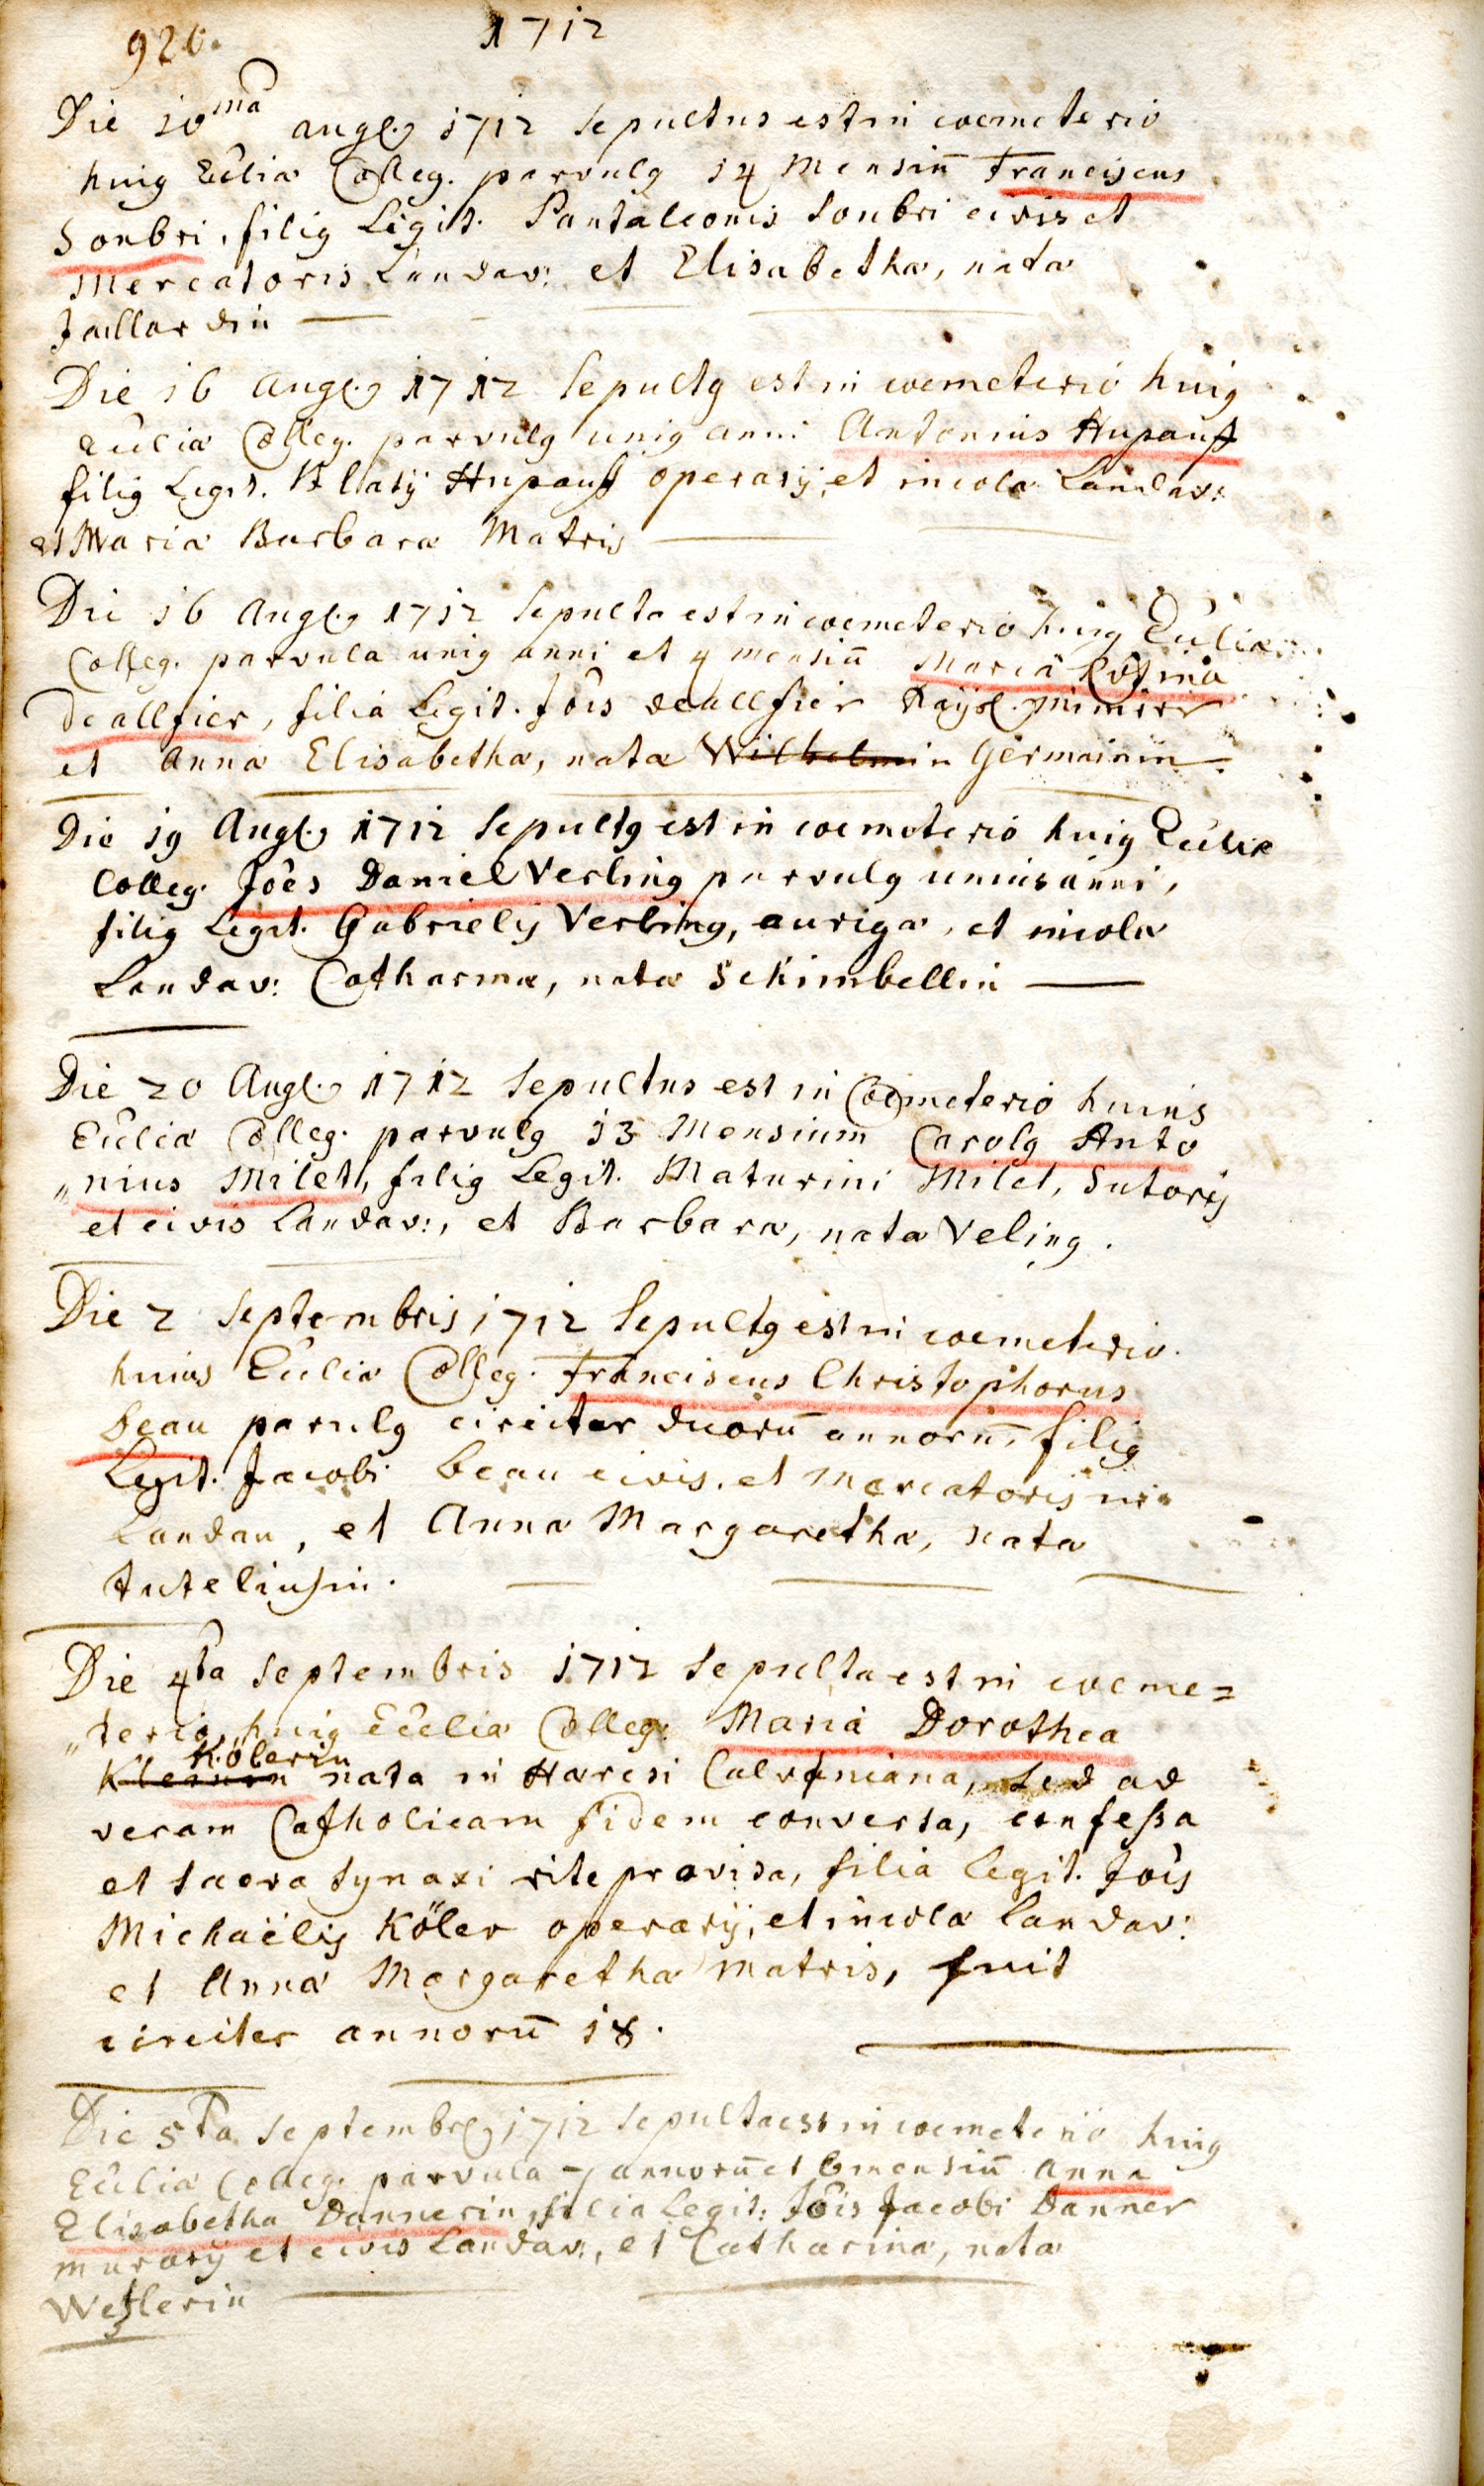 920. 1712
Die 10ma aug(us) 1712 sepultus est in coemeterio
huig Eccliæ Colleg. parvulg 14 Mensiu Franciscus
Sonbri, filig Legit. Pantaleonis Sonbri civis et
Mercatoris Landav: et Elisabethæ, natæ
Jaillardin
Die 16 Augg 1712 Sepultg est in coemeterio huig
Eccliæ Colleg. parvulg unig anni Antonius Hupauf
filig Legit. Blasij Hupauf operarij, et incolæ Landav:
et Mariæ Barbaræ Matris
Die 16 Augg 1712 Sepulta est in coemeterio huig Eccliæ
Colleg. parvula unig anni et 4 mensiu Maria
deallfier, filia Legit. Jois deallfier
et Annæ Elisabethæ, natæ Wilhelmin Germainin.
Die 19 Augg 1712 Sepultg est in coemeterio huig Eccliæ
Colleg. Joes Daniel Verling parvulg unius anni,
filig Legit. Gabrielis Verling, aurigæ, et incolæ
Landav: Catharinæ, natæ Schimbellin
Die 20 Augg 1712 Sepultus est in Coemeterio huius
Eccliæ Colleg. parvulg 13 Mensium Carolg Anto
„nius Milet, filig Legit. Maturini Milet, Sutoris
et civis Landav:, et Barbaræ, natæ Veling.
Die 2 Septembris 1712 Sepultg est in coemeterio
huius Eccliæ Colleg. Franciscus Christophorus
beau parvulg circiter duoru annoru, filig
Legit. Jacobi beau civis, et Mercatoris in
Landau, et Annæ Margarethæ, natæ
Die 4ta Septembris 1712 Sepulta est in coeme=
„terio huig Eccliæ Colleg. Maria Dorothea
Kölerin
Kleinin nata in Hæresi Calviniana, sed ad
veram Catholicam fidem conversa, confessa
et sacra synaxi rite provisa, filia Legit. Jois
Michaëlis Köler operarij, et incolæ Landav:
et Annæ Margarethæ matris, fuit
circiter annoru 18.
Die 5ta Septembrg 1712 Sepulta est in coemeterio huig
Eccliæ Colleg. parvula 7 annoru et 6 mensiu Anna
Elisabetha Dannerin, filia Legit: Jois Jacobi Danner
murarij et civis Landav:, et Catharinæ, natæ
Wetzlerin